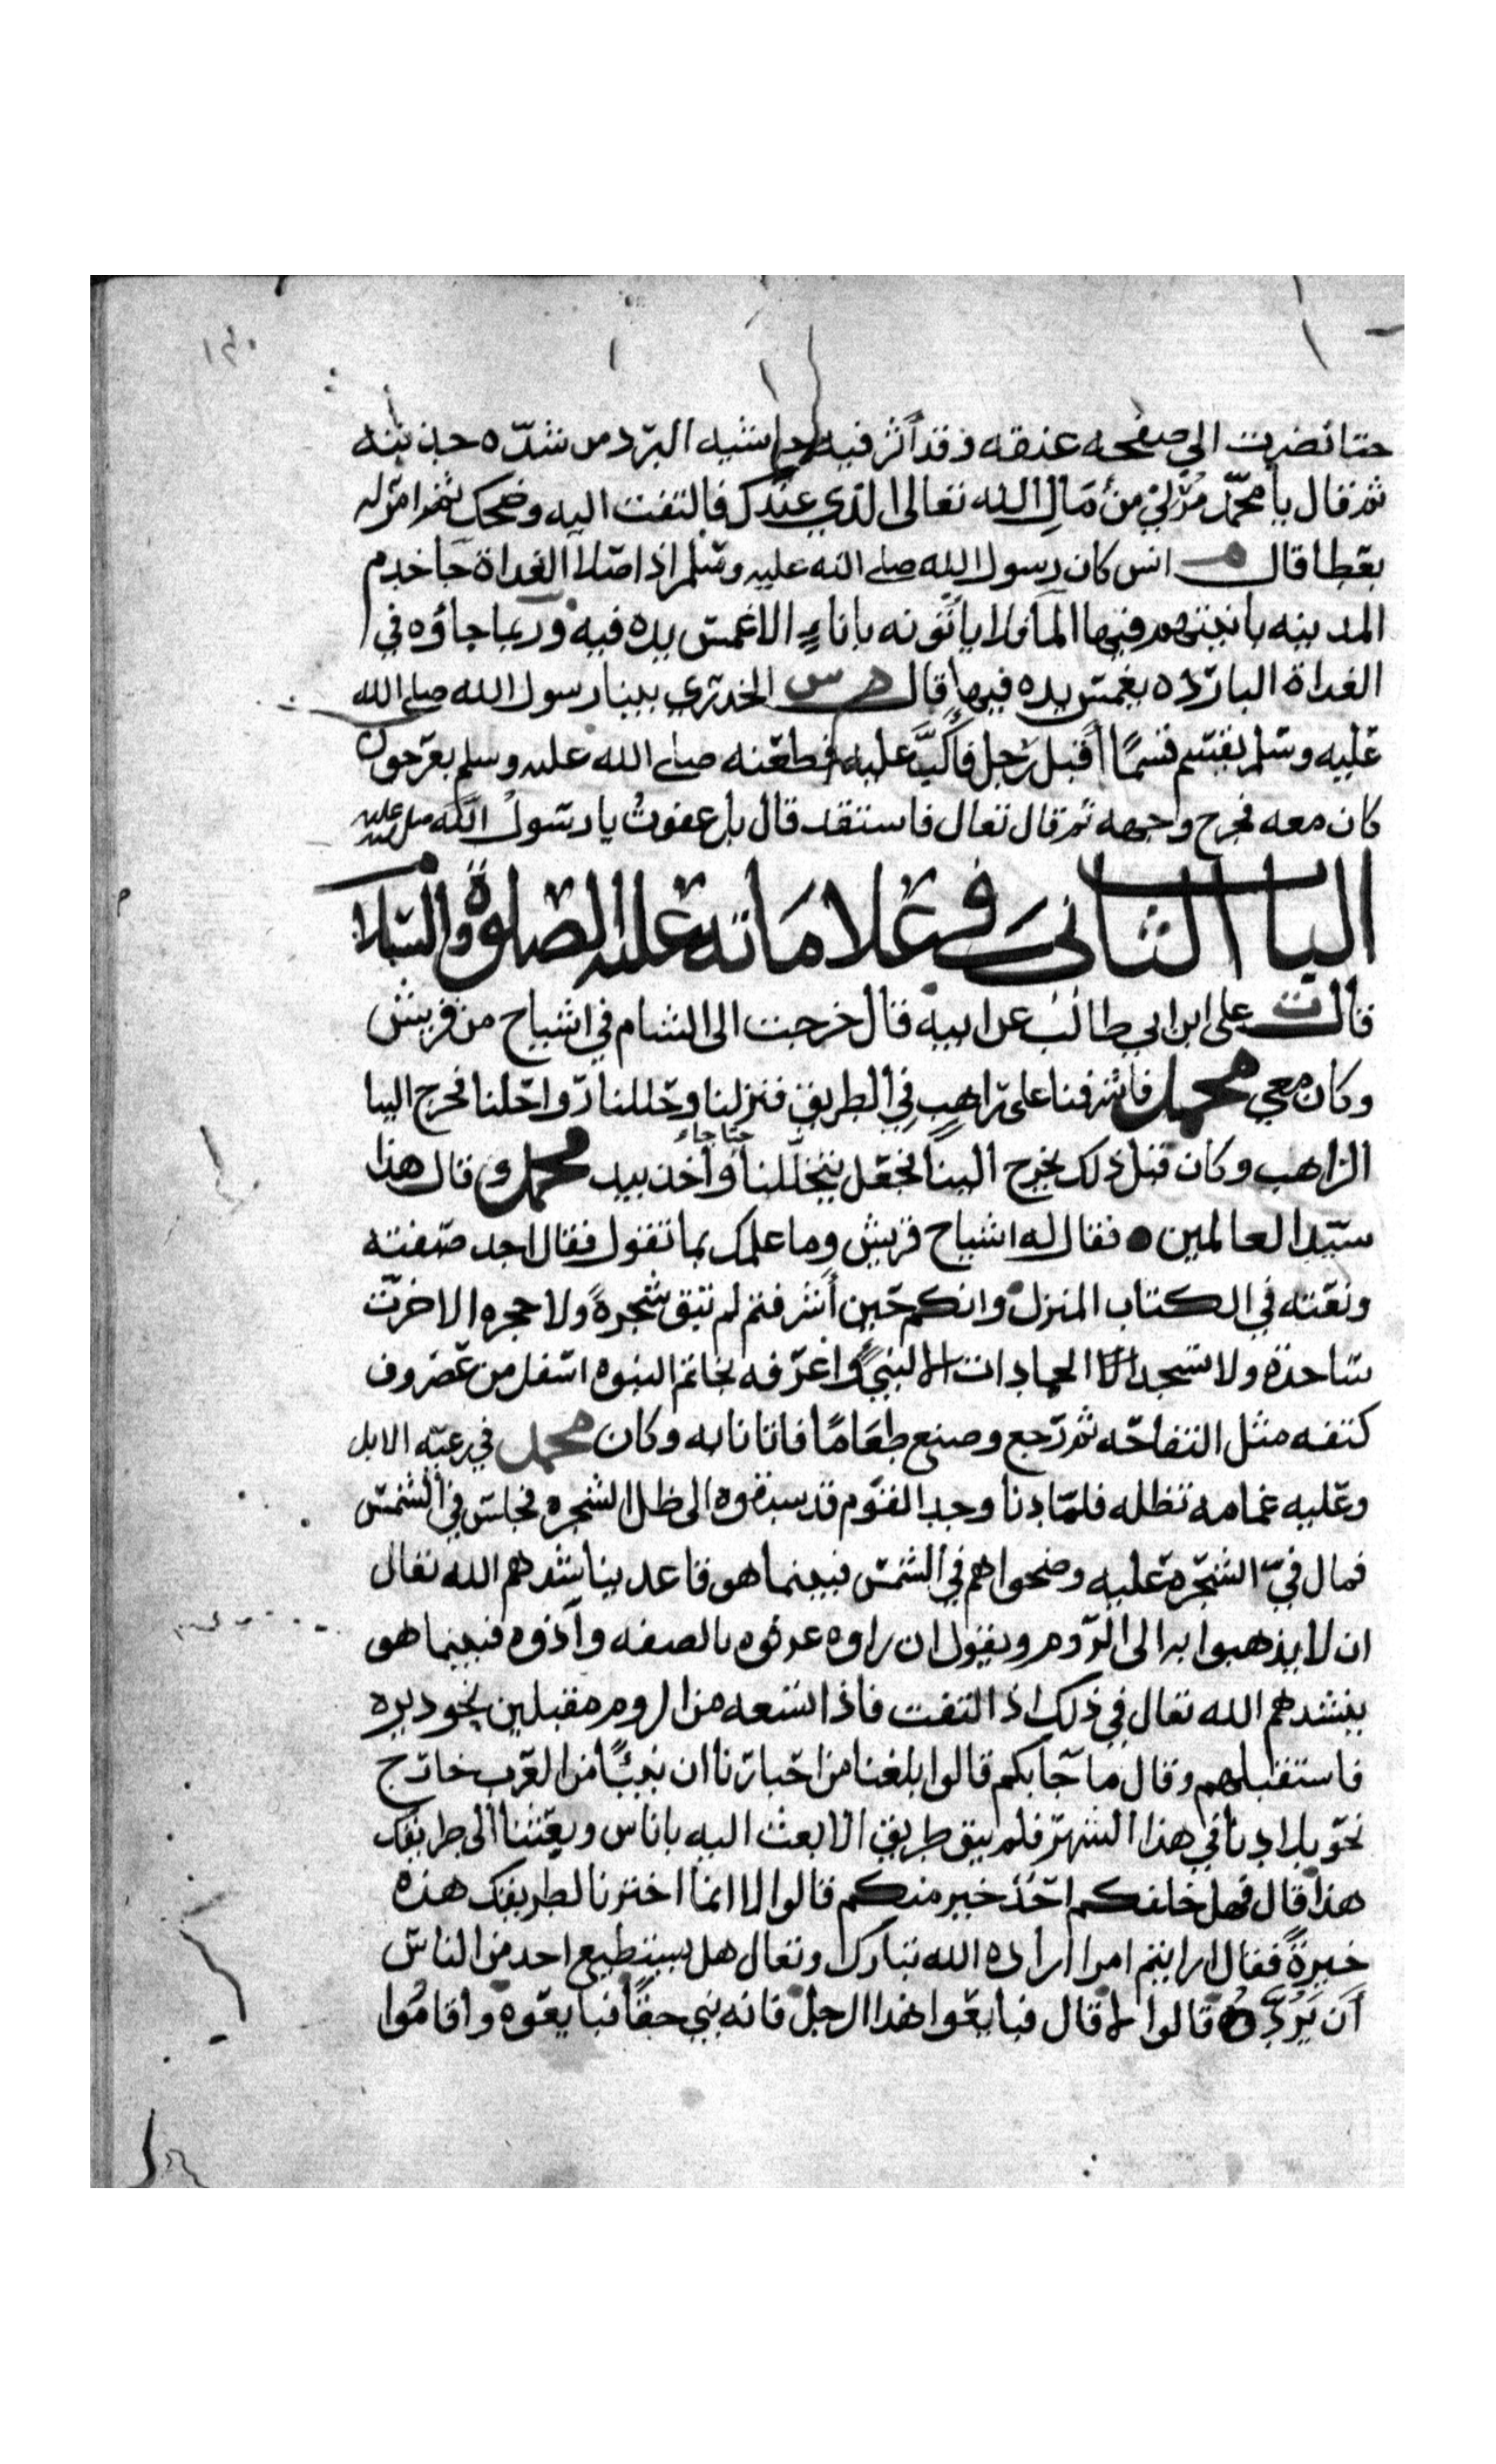 ١٣٠
حتا نضرت الى صفحه عنقه وقد أثر فيه حاشيه البرد من شدّه جذبته
ثم قال يا محمّد مُرْ لي من مَالِ الله تعالى الذي عندك فالتفت اليه وضحك ثم امر له
بعَطا قال م انس كان رسول الله صلى الله عليه وسَلم اذا صَلا الغداة جَا خدم
المدينه بانيتهم فيها المآ ولا يأتونه باناءٍ الا غمسَ يده فيه وربما جاؤه في
الغداة البارده يغمسَ يده فيها قال د س الخدري بينا رسول الله صلى الله
عَليه وسَلم يقسم قسمًا أقبل رَجل فأكبَّ عَليه فطعَنه صلى الله عليه وسلم بعَرجون
كان معه فجرح وجهه ثم قال تعال فاستقد قال بل عفوتُ يا رسَولُ الله صلى الله عليه
الباب الثانى فى عَلامَاته عليه الصلوة والسَلام
قال ت على ابن ابي طالب عن ابيه قال خرجت الى الشام في اشياخ من قريش
وكان معي محمد فاشرفنا على رَاهبٍ فِي الطريق فنزلنا وحَللنا رَواحَلنا فخرج الينا
الراهب وكان قبل ذلك يخرج الينا فجَعَل يتخلّلنا حتا جاء وأخذ بيد محمد وقال هذا
سيّد العالمين فقال له اشياخ قريش وما علمك بما تقول فقال اجد صَفته
ونعَته في الكتاب المنزل وانكم حَين أشرفتم لم تبق شجرةً ولا حجره الا خرّت
ساجدة ولا تسجد الجمادات الا لنبيً واعَرفه بخاتم النبوه اسَفل من غَضروف
كتفه مثل التفاحَه ثم رَجع وصنع طعَامًا فاتانا به وكان محمد في رعيَه الابل
وعَليه غمامه تظله فلمّا دنا وجد القوَم قد سبقوه الى ظل الشجره فجلسَ في الشمسَ
فمال فيّ الشجَرة عَليه وضحوا هم في الشمسَ فبينما هو قاعد يناشدهم الله تعال
ان لا يذهبوا به الى الرّوم ويقول ان راوه عرفوه بالصفه وآذوه فبينما هو
ينشدهم الله تعال في ذلك اذ التفت فاذا تسَعه من الروم مقبلين نحو ديره
فاستقبلهم وقال ما جَآ بكم قالوا بلغنا من احَبارَنا ان نبيًّا من العَرب خارَج
نحَو بلادنا في هذا الشهرَ فلم يبق طريق الا بعث اليه باناس وبعَثنا الى طريقك
هذا قال فهل خلفكم احَدٌ خير منكم قالوا لا انما اخترنا لطريقك هذه
خيرةً فقال ارايتم امرا اراده الله تبارك وتعال هل يستطيع احد من الناسَ
أَن يَرُدَّه قالوا لا قال فبايعَوا هذا الرجل فانه نبي حقًّا فبايعَوه وأقامُوا